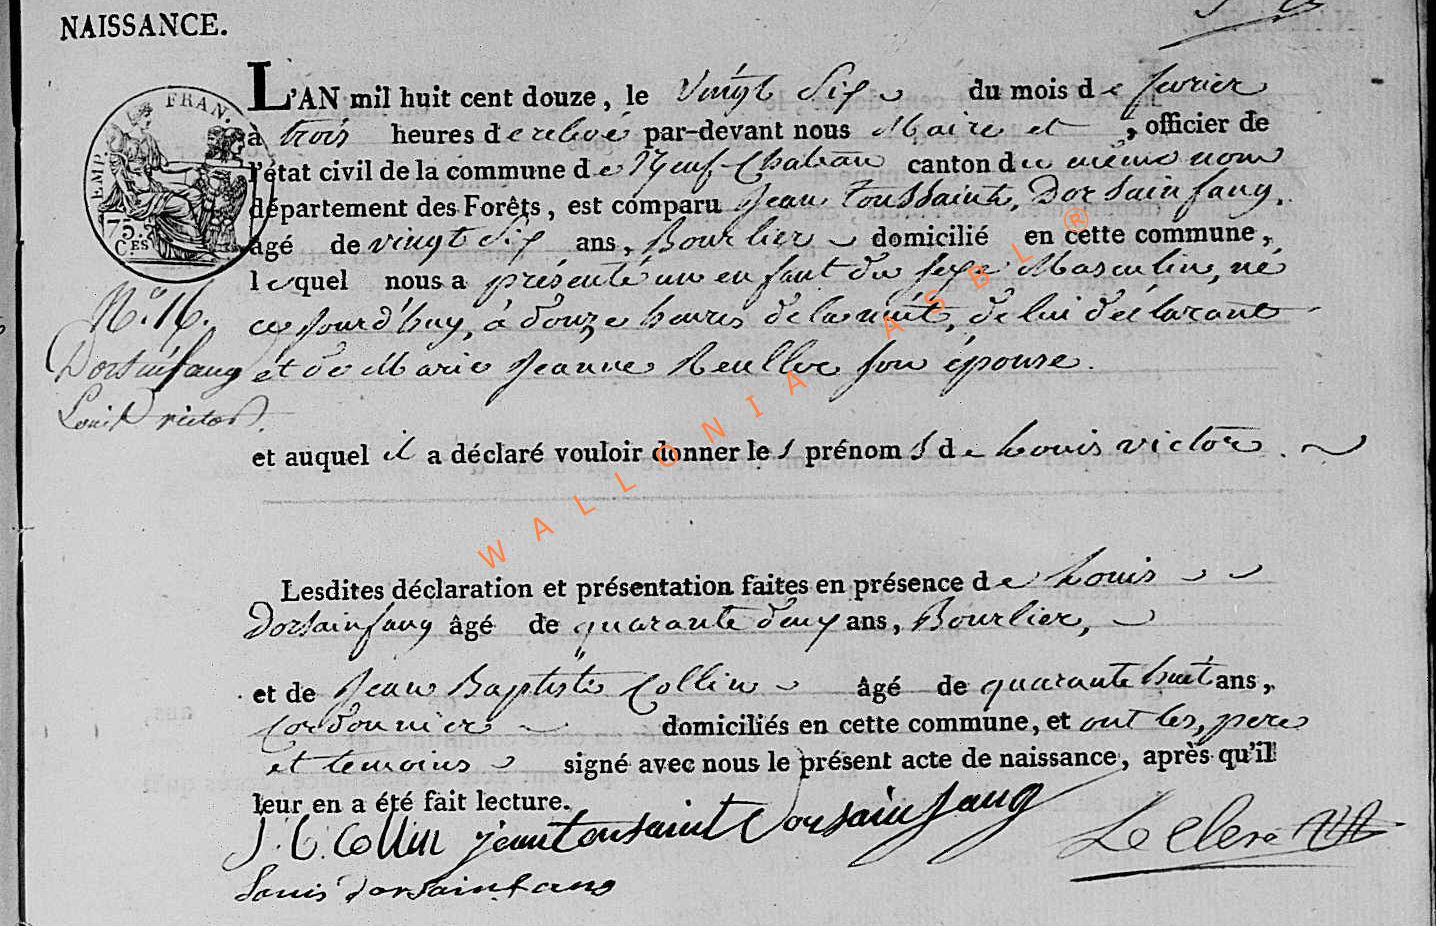 NAISSANCE.
L'AN mil huit cent douze, le vingt Six du mois de fevrier
à trois heures de relevé par-devant nous Maire et , officier de
l'état civil de la commune de Neuf-Chateau canton du même nom
département des Forêts, est comparu Jean toussaint, Dorsainfang,
âgé de vingt Six ans, Bourlier domicilié en cette commune,
lequel nous a présenté un enfant du Sexe Masculin, né
ce jourd'huy, à douze heures de la nuit, de lui déclarant
et de Marie Jeanne son épouse.
et auquel il a déclaré vouloir donner les prénoms de Louis victor.
Lesdites déclaration et présentation faites en présence de Louis
Dorsainfang âgé de quarante deux ans, Bourlier,
et de Jean Baptiste Collin âgé de quarante huit ans,
Cordonnier domiciliés en cette commune, et ont les, pere
et temoins signé avec nous le présent acte de naissance, après qu'il
leur en a été fait lecture.
J. B. Collin jean tousaint dorsainfang Le Clere
Louis dorsainfang
N.º 16.
Dorsinfang
Louis Victor.
EMP. FRAN.
75.
C.ES
WALLONIA ASBL ®